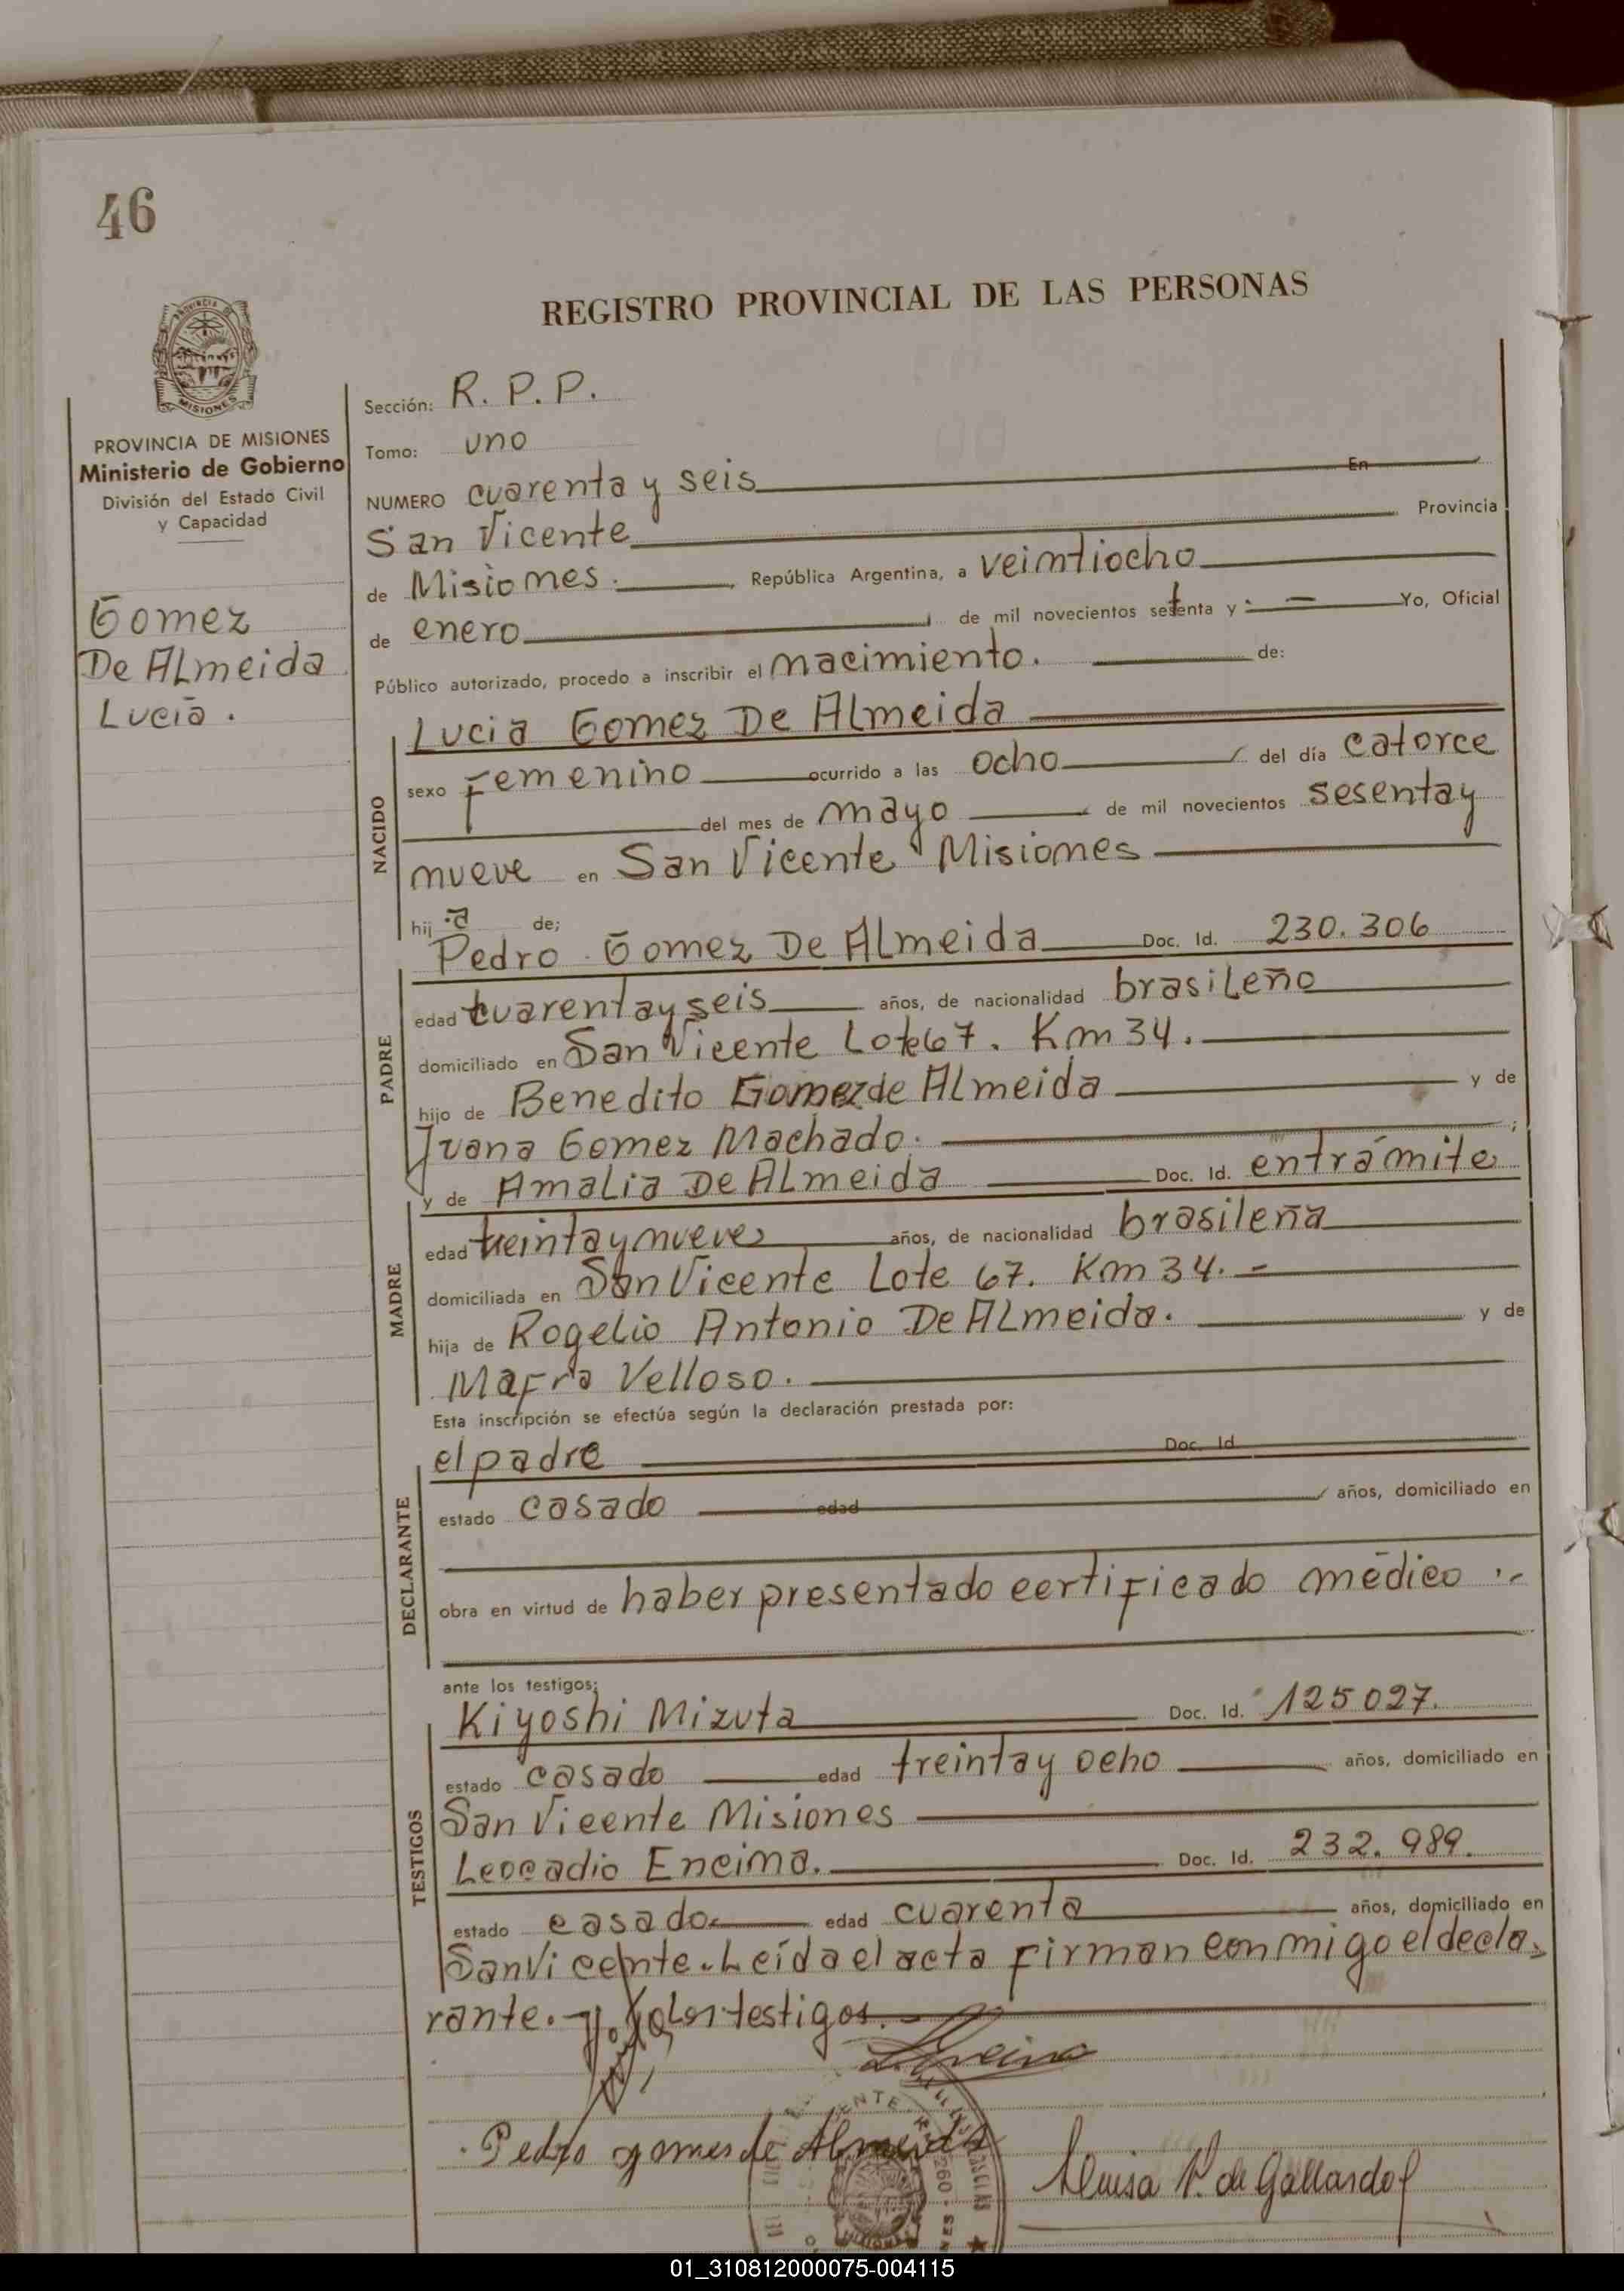 46
REGISTRO PROVINCIAL DE LAS PERSONAS
MISIONES
PROVINCIA DE MISIONES
Ministerio de Gobierno
División del Estado Civil
y Capacidad
Gomez
De ALmeida
Lucia.
Sección: R. P. P.
Tomo: uno
NUMERO cuarenta y seis En
San Vicente Provincia
de Misiones. República Argentina, a veintiocho
de enero de mil novecientos setenta y Yo, Oficial
Público autorizado, procedo a inscribir el nacimiento. de:
NACIDO
Lucia Gomez De ALmeida
sexo Femenino ocurrido a las ocho del día catorce
del mes de mayo de mil novecientos sesenta y
nueve en San Vicente Misiones
hij a de;
PADRE
Pedro Gomez De ALmeida Doc. Id. 230.306
edad cuarenta y seis años, de nacionalidad brasileño
domiciliado en San Vicente Lote 67. Km 34.
hijo de Benedito Gomez de ALmeida y de
Juana Gomez Machado. ;
MADRE
y de Amalia De ALmeida Doc. Id. en trámite
edad treinta y nueve años, de nacionalidad brasileña
domiciliada en San Vicente Lote 67. Km 34. -
hija de Rogelio Antonio De ALmeida. y de
Mafra Velloso.
Esta inscripción se efectúa según la declaración prestada por:
DECLARANTE
el padre Doc. Id
estado casado edad años, domiciliado en
obra en virtud de haber presentado certificado médico .-
ante los testigos;
TESTIGOS
Kiyoshi Mizuta Doc. Id. 125027.
estado casado edad treinta y ocho años, domiciliado en
San Vicente Misiones
Leocadio Encina. Doc. Id. 232.989.
estado casado edad cuarenta años, domiciliado en
San Vicente. Leída el acta firman conmigo el decla-
rante. y los testigos. -
Pedro gomes de Almeida
Luisa V. de Gallardo
01_310812000075-004115